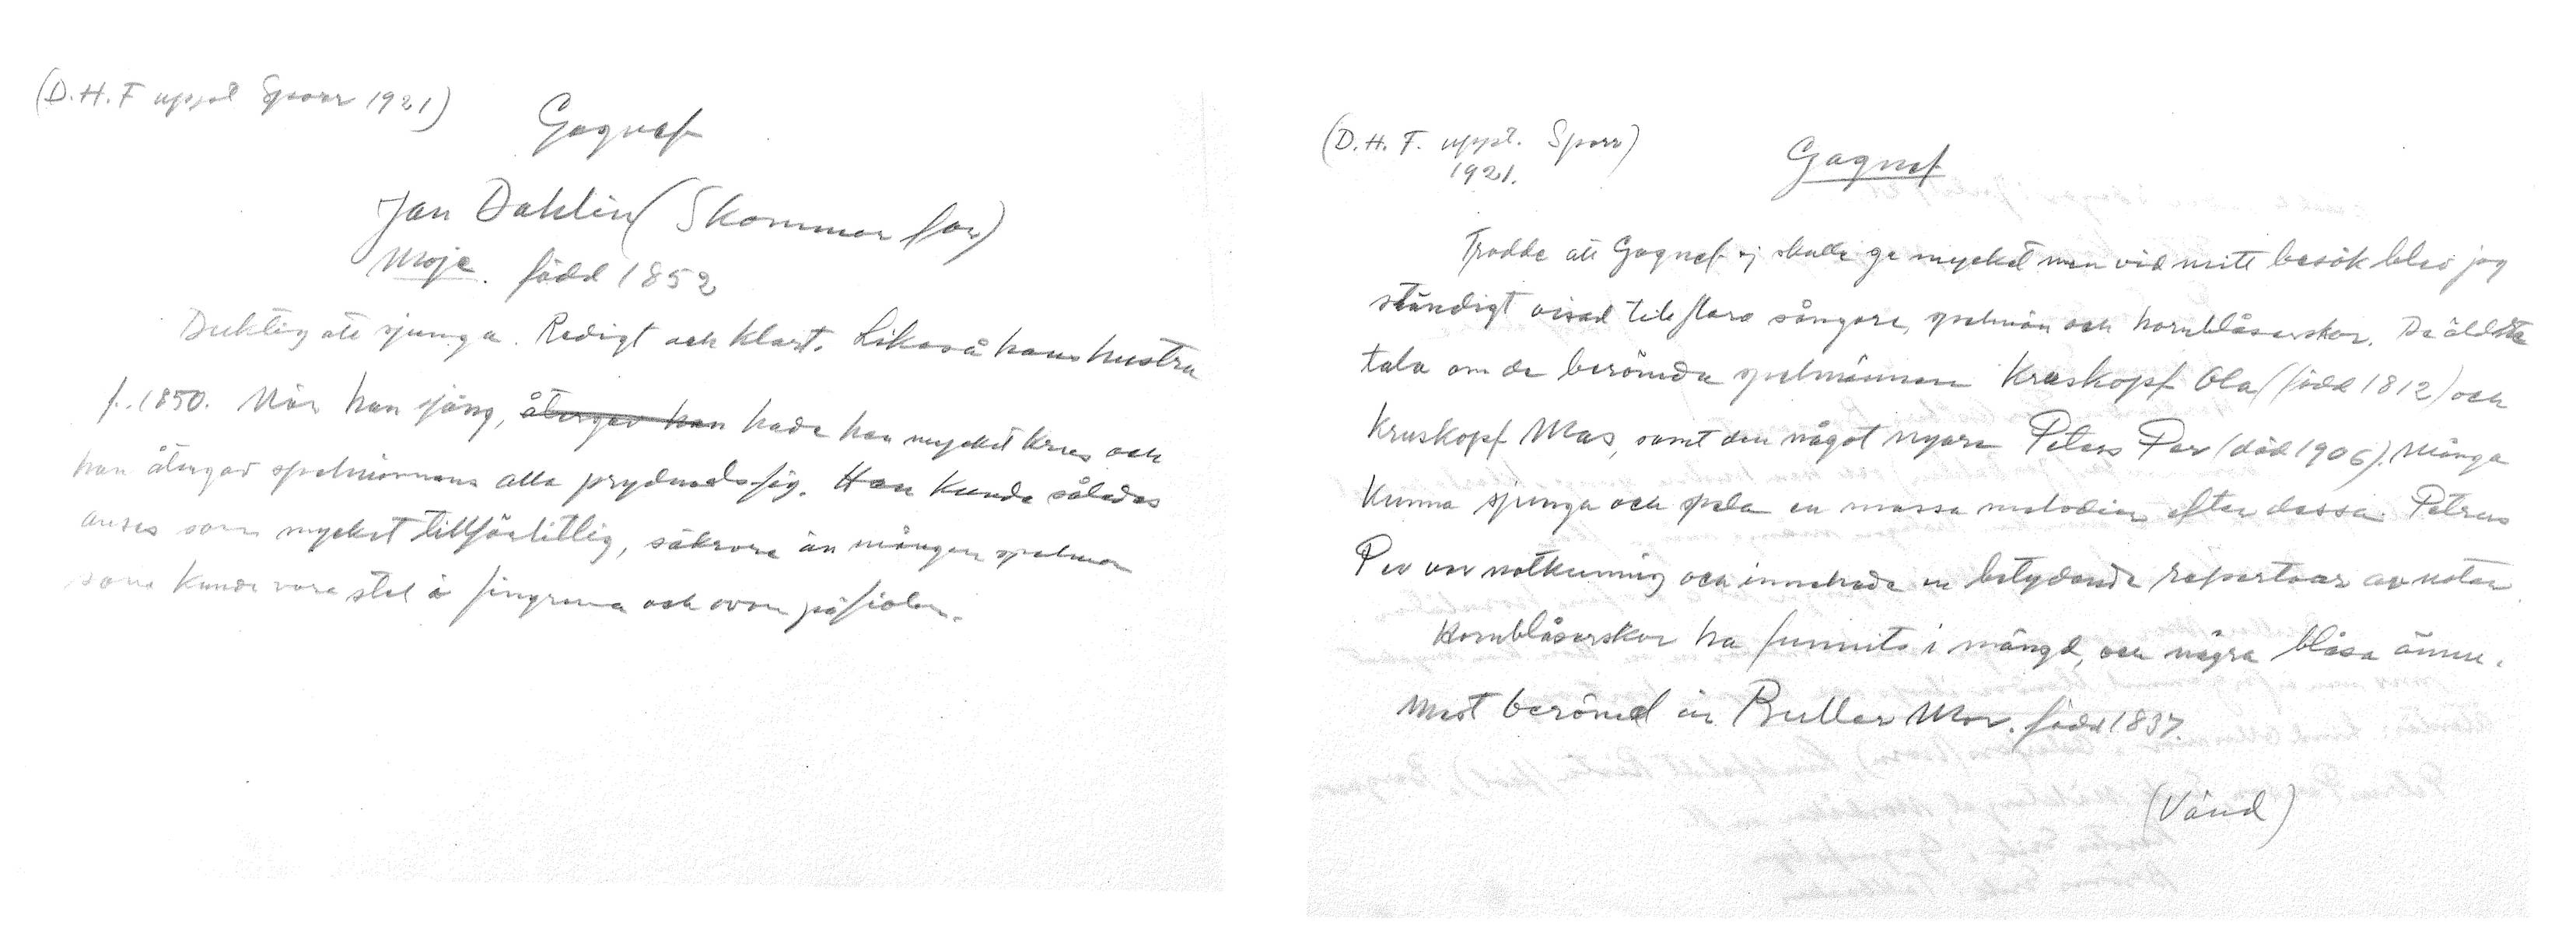 (D.H.F uppt Sporr 1921)
Gagnef
Jan Dahlin (Skommar far)
Moje. född 1852
Duktig att sjunga. Redigt och klart. Likaså hans hustru
f. 1850. När han sjöng, återgav han hade han mycket krus och
han återgav spelmännens alla prydnadsfig. Han kunde således
anses som mycket tillförlitlig, säkrare än mången spelman
som kunde vara stel i fingrarna och ovan på fiolen.
(D.H.F. uppt. Sporr)
1921.
Gagnef
Trodde att Gagnef ej skulle ge mycket men vid mitt besök blev jag
ständigt visad till flera sångare, spelmän och hornblåserskor. De äldsta
tala om de berömda spelmännen Kruskopf Ola (född 1812) och
Kruskopf Mas, samt den något nyare Petrus Per (död 1906). Många
kunna sjunga och spela en massa melodier efter dessa. Petrus
Per var notkunnig och innehade en betydande repertoar av noter.
Hornblåserskor ha funnits i mängd, och några blåsa ännu.
Mest berömd är Buller Mor. född 1837.
(Vänd)